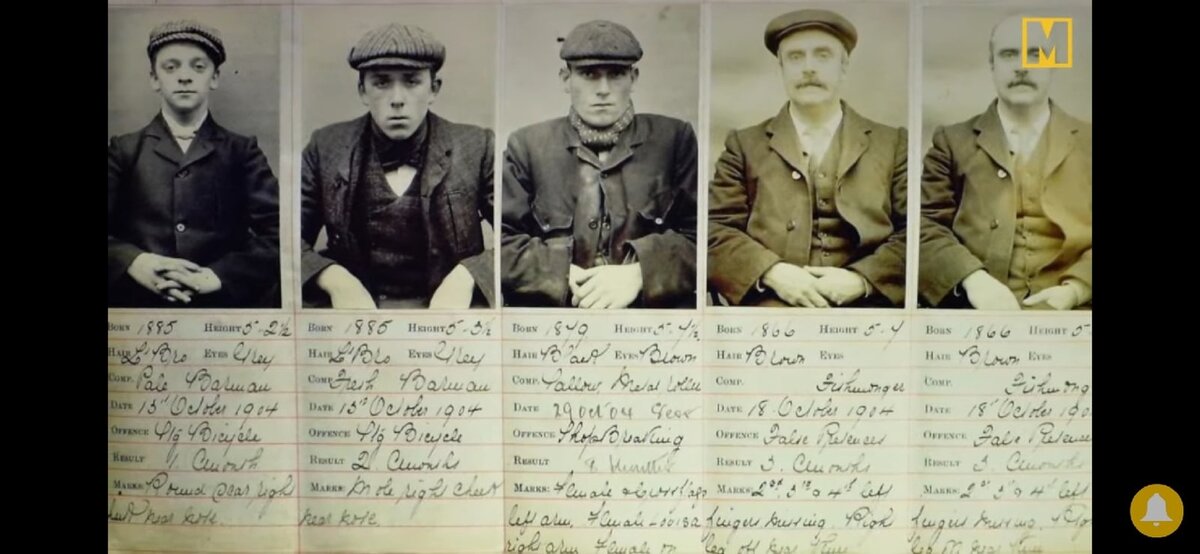 M
BORN 1885 HEIGHT 5-2½
HAIR Lt Bro EYES Grey
COMP. Pale Barman
DATE 15th October 1904
OFFENCE Stg Bicycle
RESULT 1. Cmonth
MARKS: Round scar right
near nose.
BORN 1885 HEIGHT 5-3½
HAIR Lt Bro EYES Grey
COMP. Fresh Barman
DATE 15th October 1904
OFFENCE Stg Bicycle
RESULT 2. Cmonths
MARKS: Mole right cheek
near nose.
BORN 1879 HEIGHT 5-4½
HAIR Black EYES Brown
COMP. Sallow, Metal roller
DATE 29 Oct 04
OFFENCE Shop Breaking
RESULT
MARKS: Female
left arm, Female Louisa
right arm Female on
BORN 1866 HEIGHT 5-4
HAIR Brown EYES
COMP. Fishmonger
DATE 18 October 1904
OFFENCE False Pretences
RESULT 3. Cmonths
MARKS: 2nd 3rd & 4th left
fingers missing. Righ
leg off near
BORN 1866 HEIGHT 5
HAIR Brown EYES
COMP. Fishmong
DATE 18 October 190
OFFENCE False Pretences
RESULT 3. Cmonths
MARKS: 2nd 3rd & 4th left
fingers missing.
leg